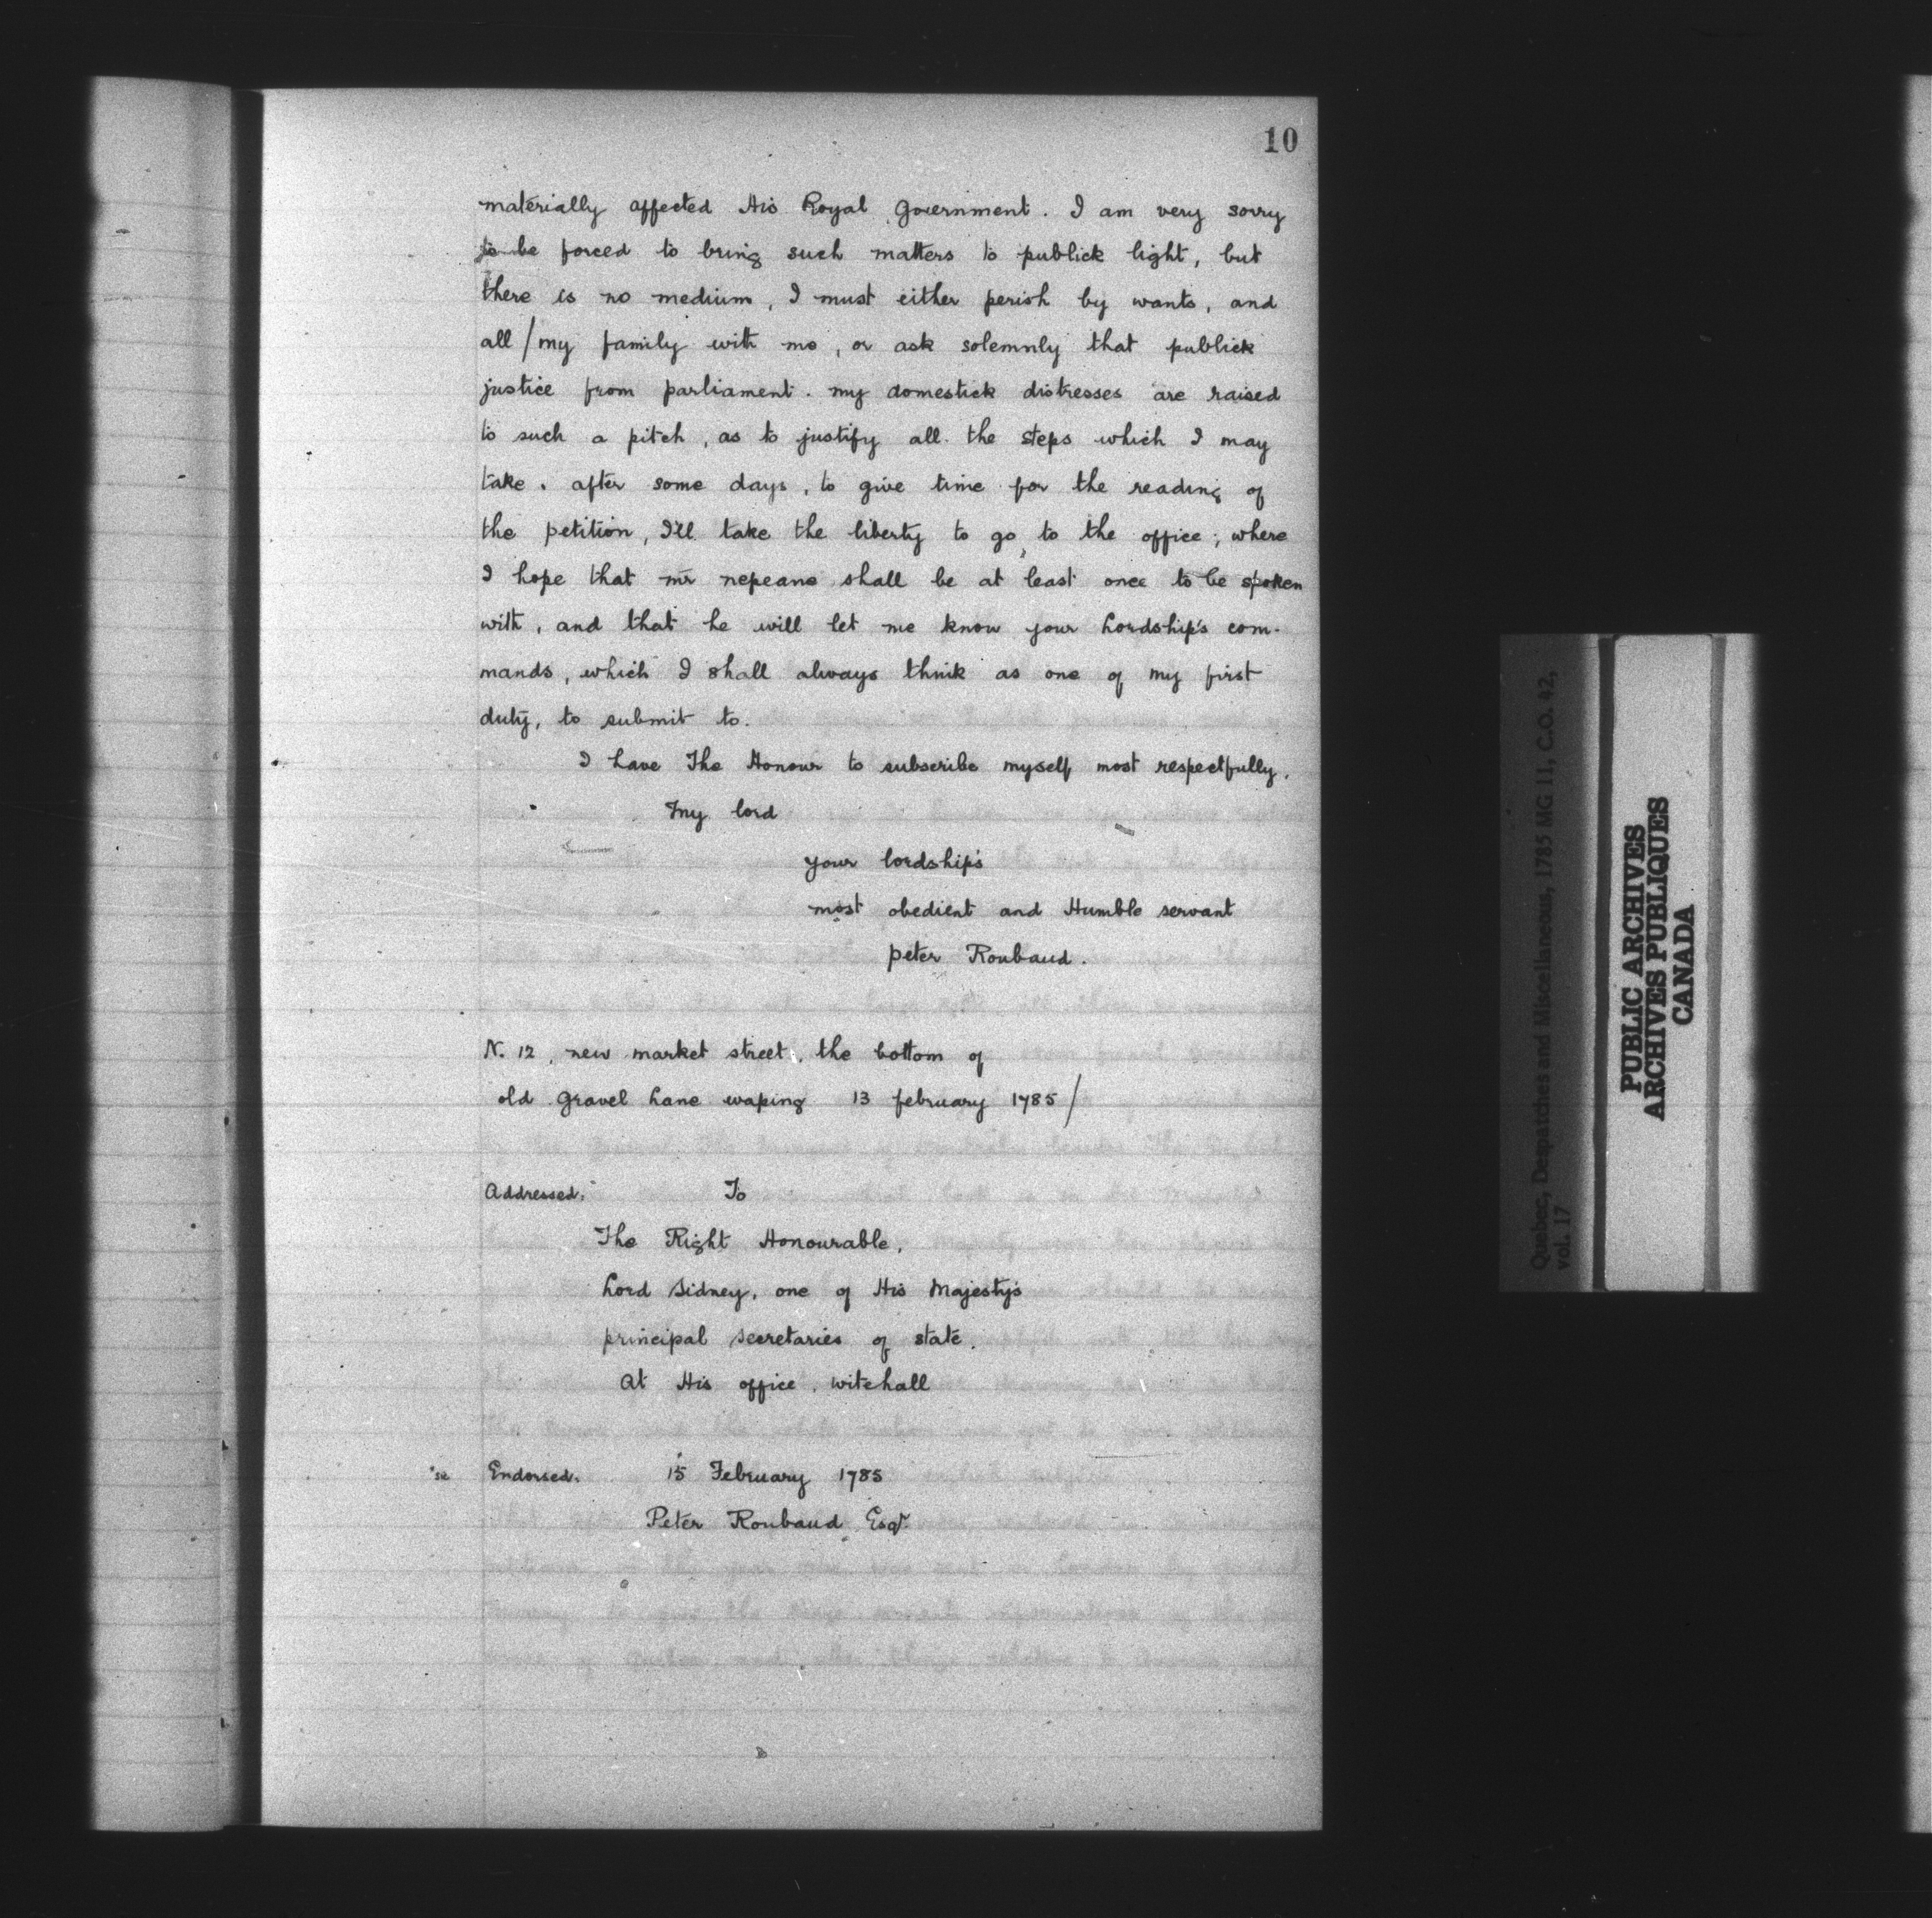 10
materially affected His Royal Government. I am very sorry
to be forced to bring such matters to publick light, but
there is no medium, I must either perish by wants, and
all / my family with me, or ask solemnly that publick
justice from parliament. my domestick distresses are raised
to such a pitch, as to justify all the steps which I may
take. after some days, to give time for the reading of
the petition, I'll take the liberty to go, to the office; where
I hope that mr nepeane shall be at least once to be spoken
with, and that he will let me know your Lordship's com-
mands, which I shall always think as one of my first
duty, to submit to.
I have The Honour to subscribe myself most respectfully,
My lord
your lordship's
most obedient and Humble servant
peter Roubaud.
N. 12, new market street, the bottom of
old gravel Lane waping 13 february 1785 /
Addressed. To
The Right Honourable,
Lord Sidney, one of His Majesty's
principal secretaries of state.
At His office, witehall
Endorsed. 15 February 1785
Peter Roubaud Esqr.
Quebec, Despatches and Miscellaneous, 1785 MG 11, C.O. 42,
vol. 17
PUBLIC ARCHIVES
ARCHIVES PUBLIQUES
CANADA